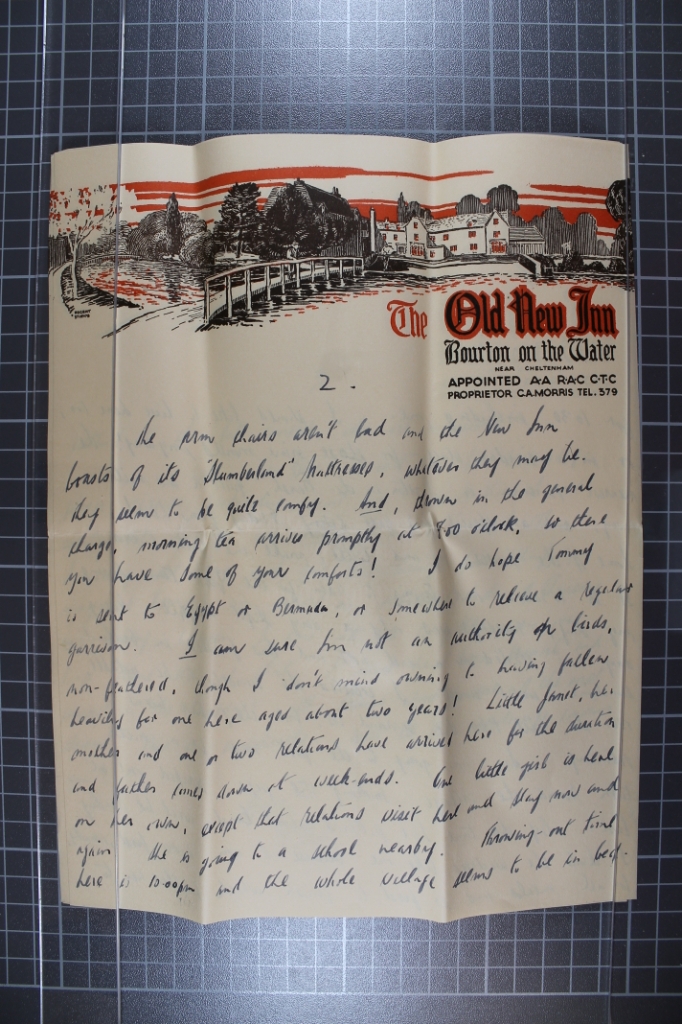 The Old New Inn
Bourton on the Water
NEAR CHELTENHAM
APPOINTED A·A R·A·C C·T·C
PROPRIETOR C.A.MORRIS TEL. 379
2.
The arm chairs aren't bad and the New Inn
boasts of its "Slumberland" Mattresses, whatever they may be.
They seem to be quite comfy. And, thrown in the general
charge, morning tea arrives promptly at 8.00 o'clock, so there
you have some of your comforts! I do hope Tommy
is sent to Egypt or Bermuda, or somewhere to relieve a regular
garrison. I am sure I'm not an authority on birds,
non-feathered, though I don't mind owning to having fallen
heavily for one here aged about two years! Little Janet, her
mother and one or two relations have arrived here for the duration
and father comes down at week-ends. One little girl is here
on her own, except that relations visit her and stay now and
again. She is going to a school nearby. Throwing-out time
here is 10.00pm and the whole village seems to be in bed.